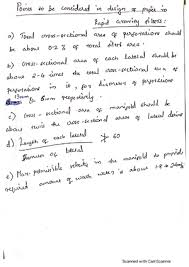 Points to be considered in design of pipes in
Rapid gravity filters:
a) Total cross-sectional area of perforations should
be about 0.2% of total filter area.
b) Cross-sectional area of each lateral should be
about 2-4 times the total cross-sectional sum of
perforations in it, for diameters of perforations
13mm to 6mm respectively.
c) Cross-sectional area of manifold should be
about twice the cross-sectional area of lateral drains
d) Length of each lateral ≯ 60
Diameter of lateral
e) Max. permissible velocity in the manifold to provide
required amount of wash water is about 1.8 - 2.4m/s
Scanned with CamScanner